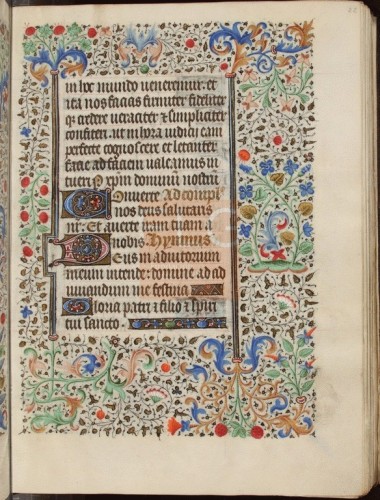 in hoc mundo veneremur: et
ita nos facias firmiter fideliter
q̄ credere veraciter & simpliciter
confiteri. ut in hora iudicii eam
perfecte cognoscere et letanter
facie ad faciem valeamus in
tueri P̄ xp̄m dominū nostrū
Converte Ad compl̄
nos deus salutaris
nr̄. Et averte iram tuam a
nobis Hymnus
Deus in adiutorium
meum intende: domine ad ad
iuvandum me festina
Gloria patri & filio & spirī
tui sancto.